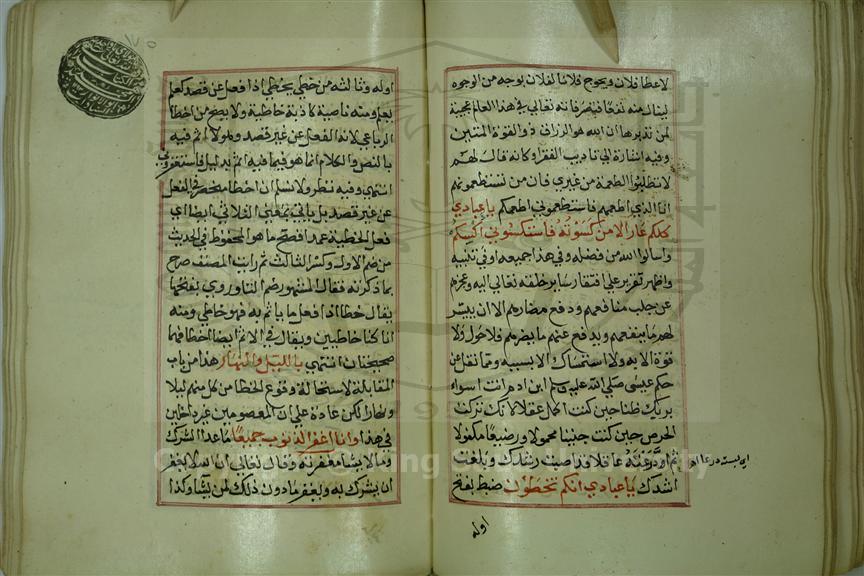 لاعطا فلان ويحوج فلانا لفلان بوجه من الوجوه
لينال منه نفعا فينصر فانه تعالى في هذا العالم عجيبة
لمن تدبرها ان الله هو الرزاق ذو القوة المتين
وفيه اشارة الى تاديب الفقرا وكانه قال لهم
لا تطلبوا الطعمة من غيري فان من تستطعمونهم
انا الذي اطعمهم فاستطعموني اطعمكم يا عبادي
كلكم عار الا من كسوته فاستكسوني اكسكم
واسالوا الله من فضله وفي هذا جميعه اوفى تنبيه
واظهر تقرير على افتقار ساير خلقه تعالى اليه وعجزهم
عن جلب منافعهم ودفع مضارهم الا ان ييسر
لهم ما ينفعهم ويدفع عنهم ما يضرهم فلا حول ولا
قوة الا به ولا استمساك الا بسببه ومما نقل عن
حكم عيسى صلى الله عليه وسلم ابن ادم انت اسواء
بربك ظنا حين كنت اكمل عقلا لانك تركت
الحرص حين كنت جنينا محمولا ورضيعا مكفولا
ثم ادرعته عاقلا قد اصبت رشدك وبلغت
اي لبسته درعا
اشدك يا عبادي انكم تخطئون ضبط بفتح
اوله
اوله وثالثه من خطي يخطي اذا فعل عن قصد كعلم
يعلم ومنه ناصية كاذبة خاطية ولا يصح من اخطا
الرباعي لانه الفعل عن غير قصد وهو لا اثم فيه
بالنص والكلام انما هو فيما فيه اثم بدليل فاستغفروني
انتهى وفيه نظر ولا نسلم ان اخطا منحصر في الفعل
عن غير قصد بل ياتي بمعنى الثلاثي ايضا اي
فعل الخطية عمدا فصح ما هو المحفوظ في الحديث
من ضم الاول وكسر الثالث ثم رايت المصنف صرح
بما ذكرته فقال المشهور ضم التا وروي بفتحها
يقال خطا اذا فعل ما ياثم به فهو خاطي ومنه
انا كنا خاطيين ويقال في الاثم ايضا اخطا فهما
صحيحتان انتهى بالليل والنهار هذا من باب
المقابلة لاستحالة وقوع الخطا من كل منهم ليلا
ونهارا لكن عادة على ان المعصومين غير داخلين
في هذا وانا اغفر الذنوب جميعا ما عدا الشرك
وما لا يشا مغفرته وقال تعالى ان الله لا يغفر
ان يشرك به ويغفر ما دون ذلك لمن يشا وكذا